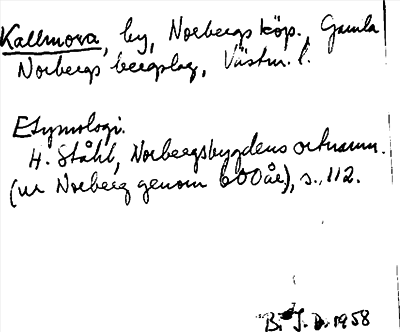 Kallmora, by, Norbergs köp., Gamla
Norbergs bergslag, Västm. l.
Etymologi.
H. Ståhl, Norbergsbygdens ortnamn.
(ur Norberg genom 600 år), s. 112.
B. J. D. 1958